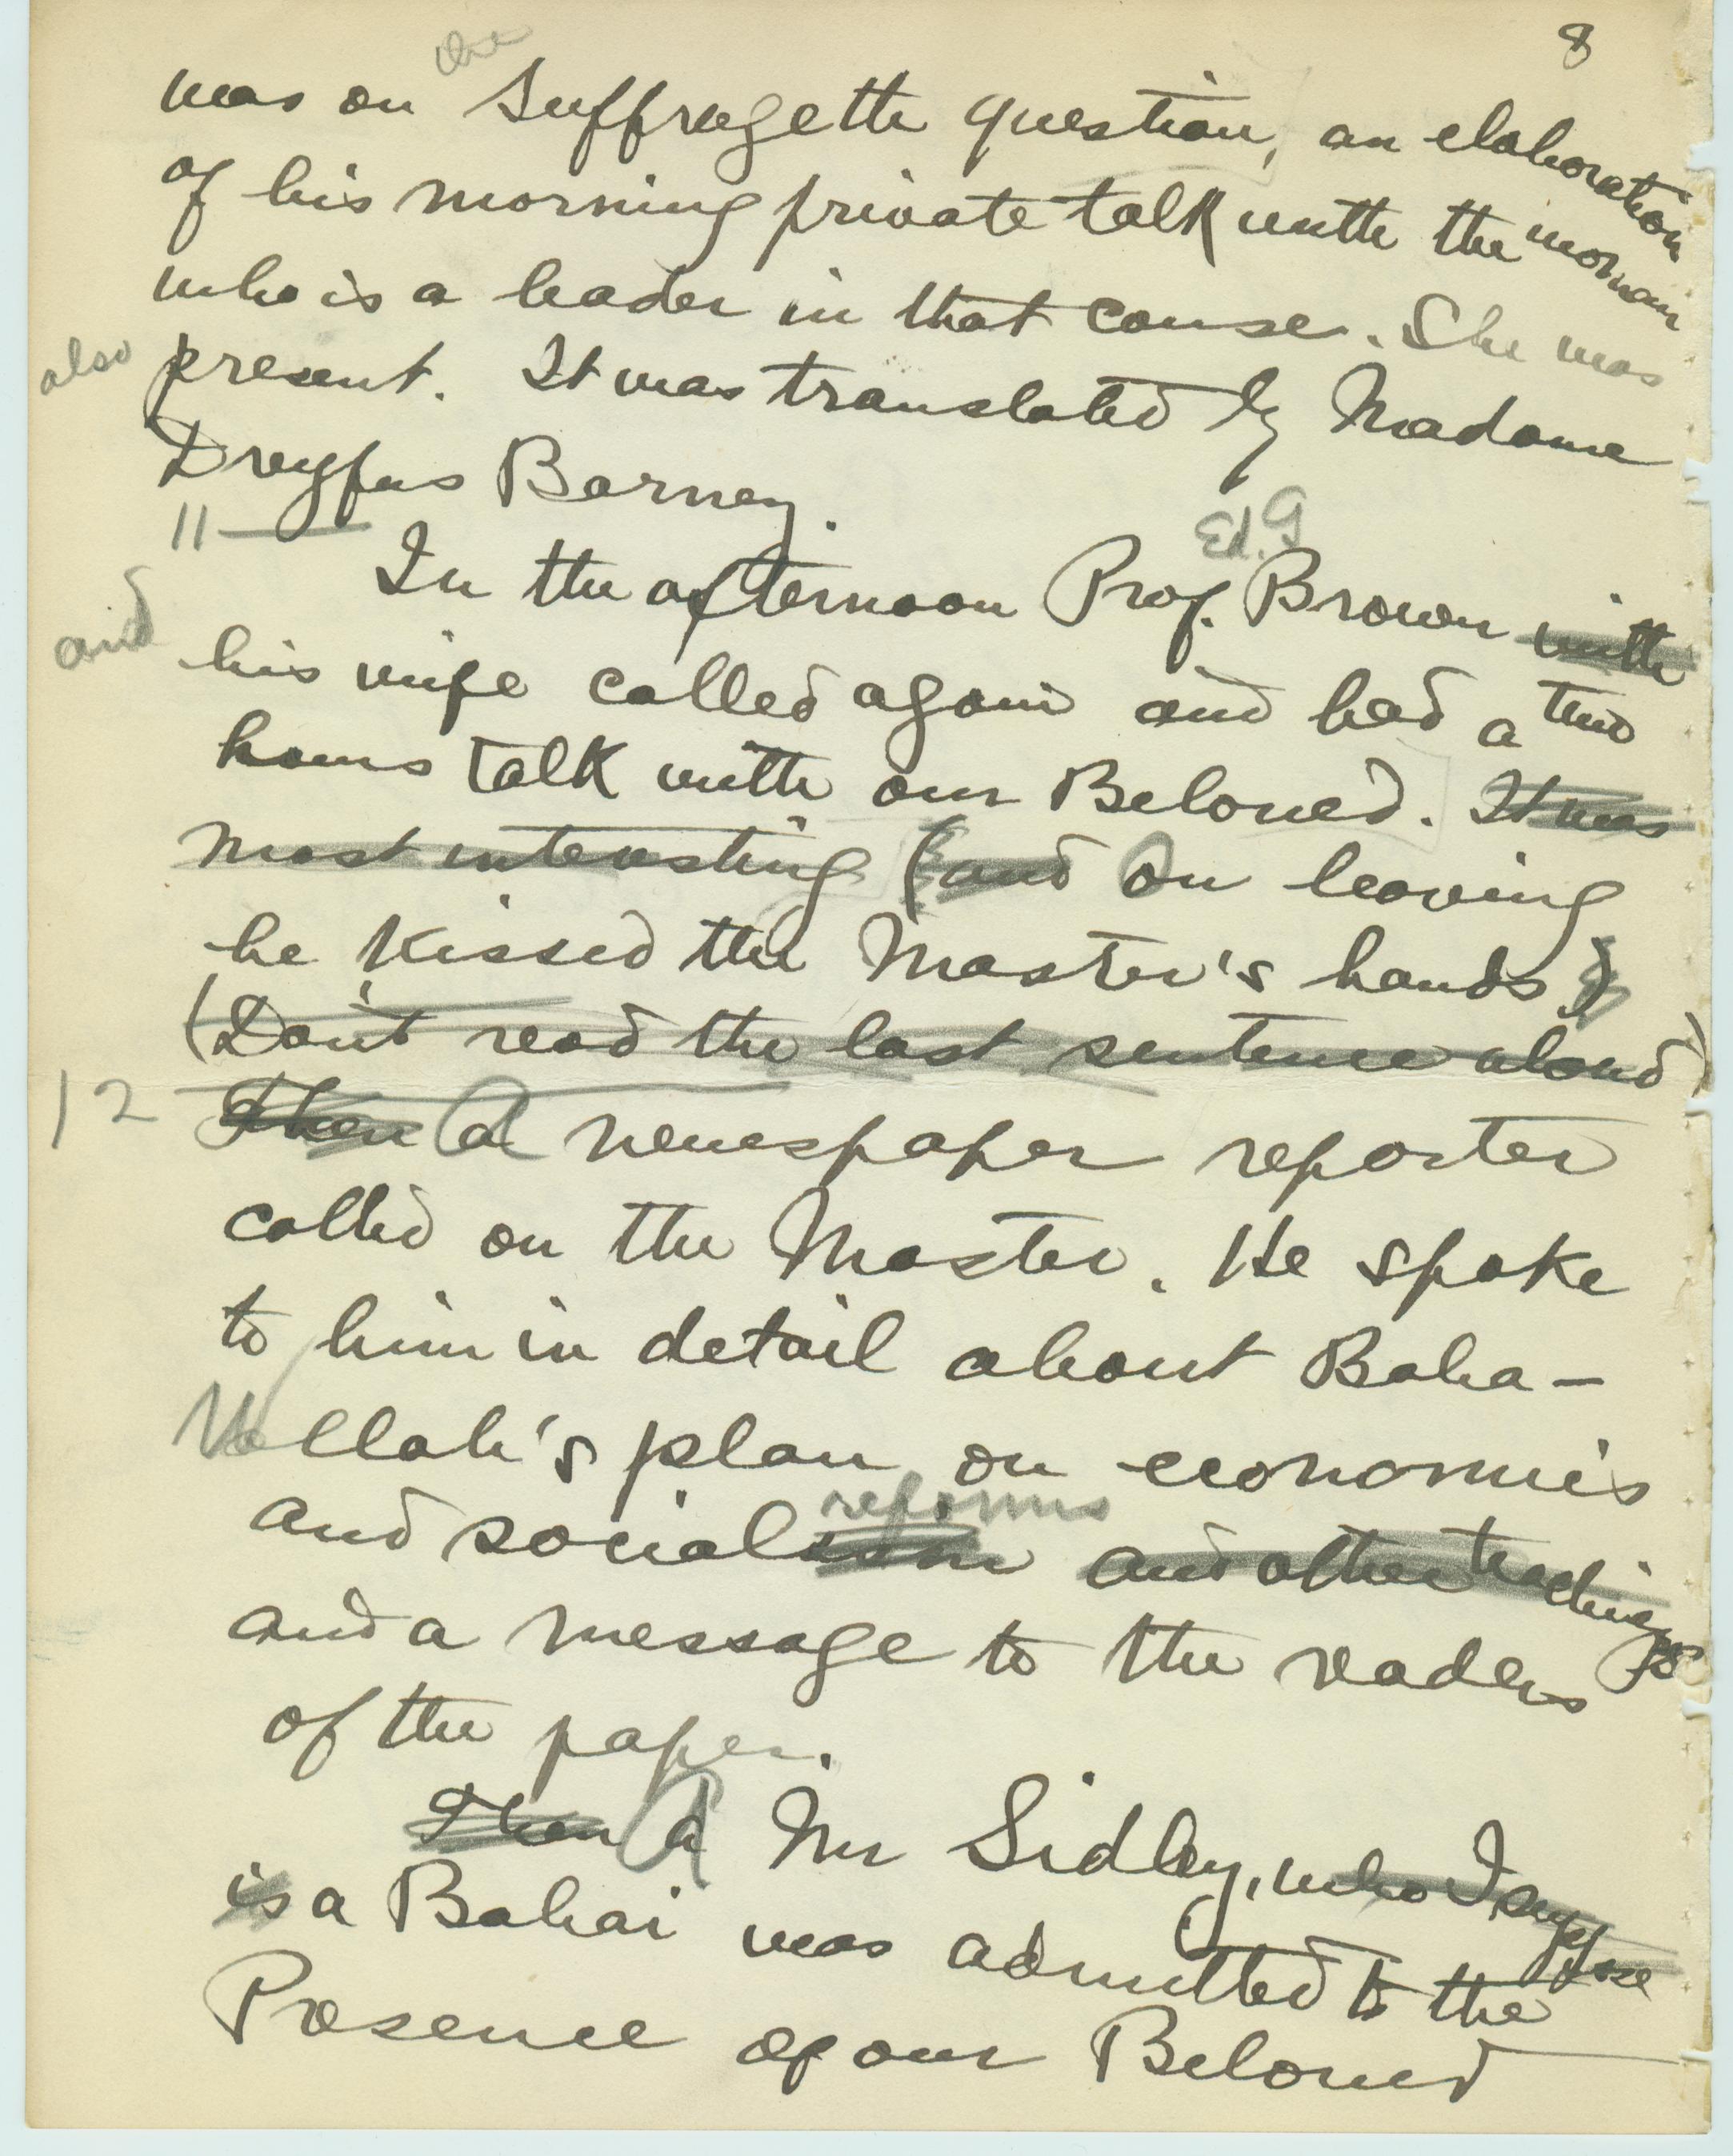 8
the
was on Suffragette question, an elaboration
of his morning private talk with the woman
who is a leader in that cause. She was
also present. It was translated by Madame
Dreyfus Barney.
11
Ed. G
In the afternoon Prof. Brown with
and his wife called again and had a two
hours talk with our Beloved. It was
most interesting (and On leaving
he kissed the Master's hands.)
(Don't read the last sentence aloud)
12 Then A newspaper reporter
called on the Master. He spoke
to him in detail about Baha-
Ullah's plan on economics
reforms
and socialism and other teachings
and a message to the readers
of the paper.
Then A Mr Sidley, who I suppose
is a Bahai was admitted to the
Presence of our Beloved